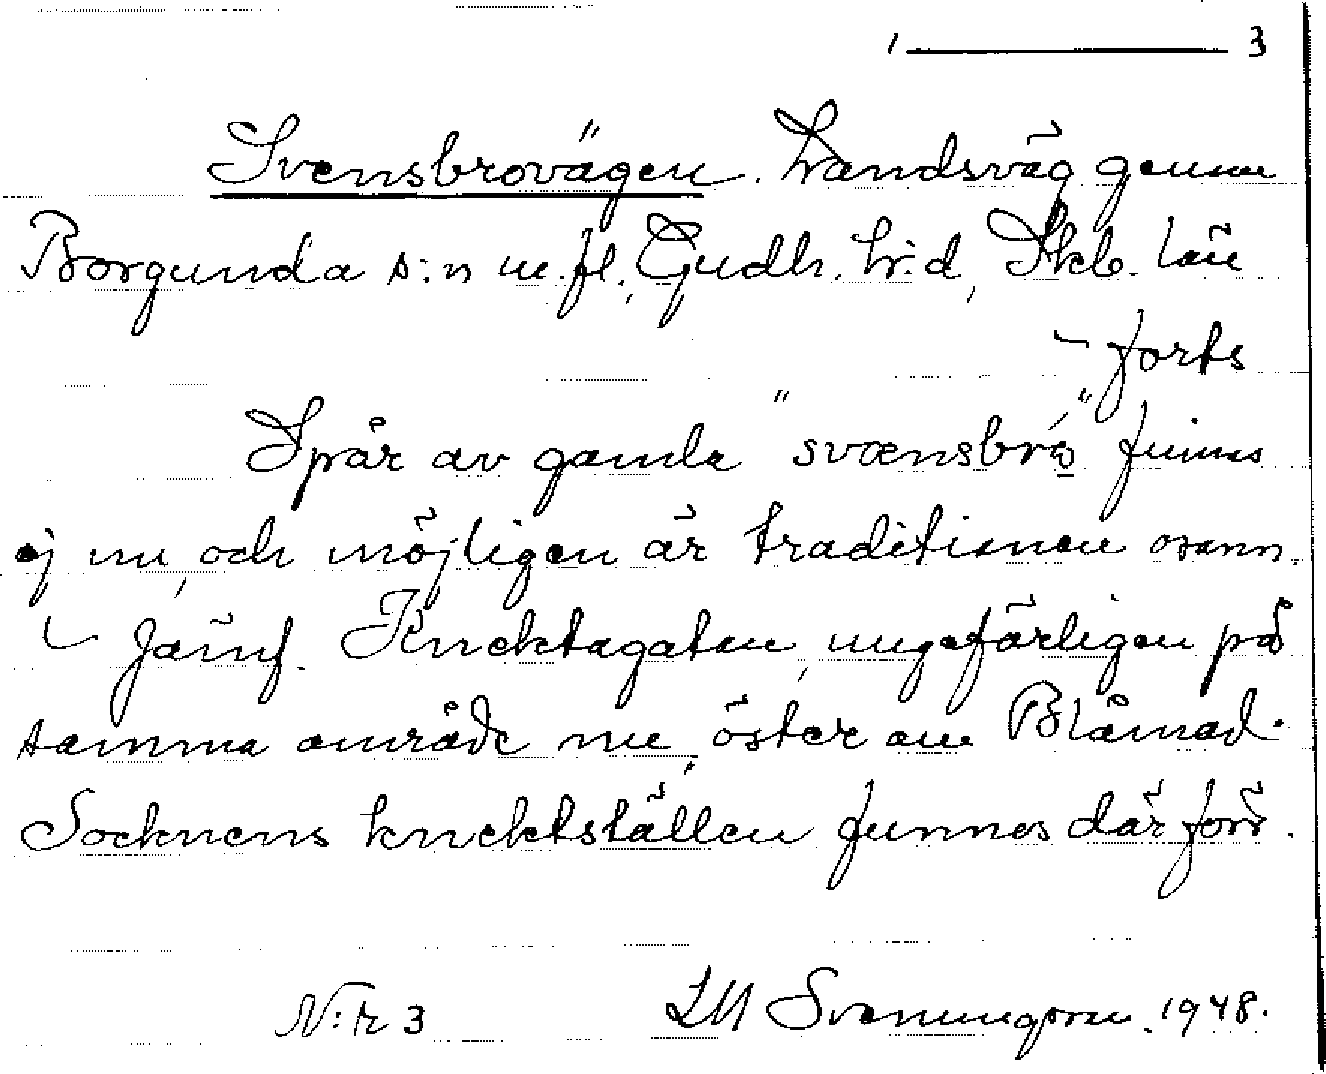 1 ——— 3
Svensbrovägen. Landsväg genom
Borgunda s:n m.fl., Gudh. h:d, Skb. län
– forts
Spår av gamla "svænsbró" finnes
ej nu, och möjligen är traditionen osann.
– Jämf. Knektagatan, ungefärligen på
samma område nu, öster om Blåmad.
Socknens knektställen funnos där förr.
N:r 3 LM Svenungsson. 1948.